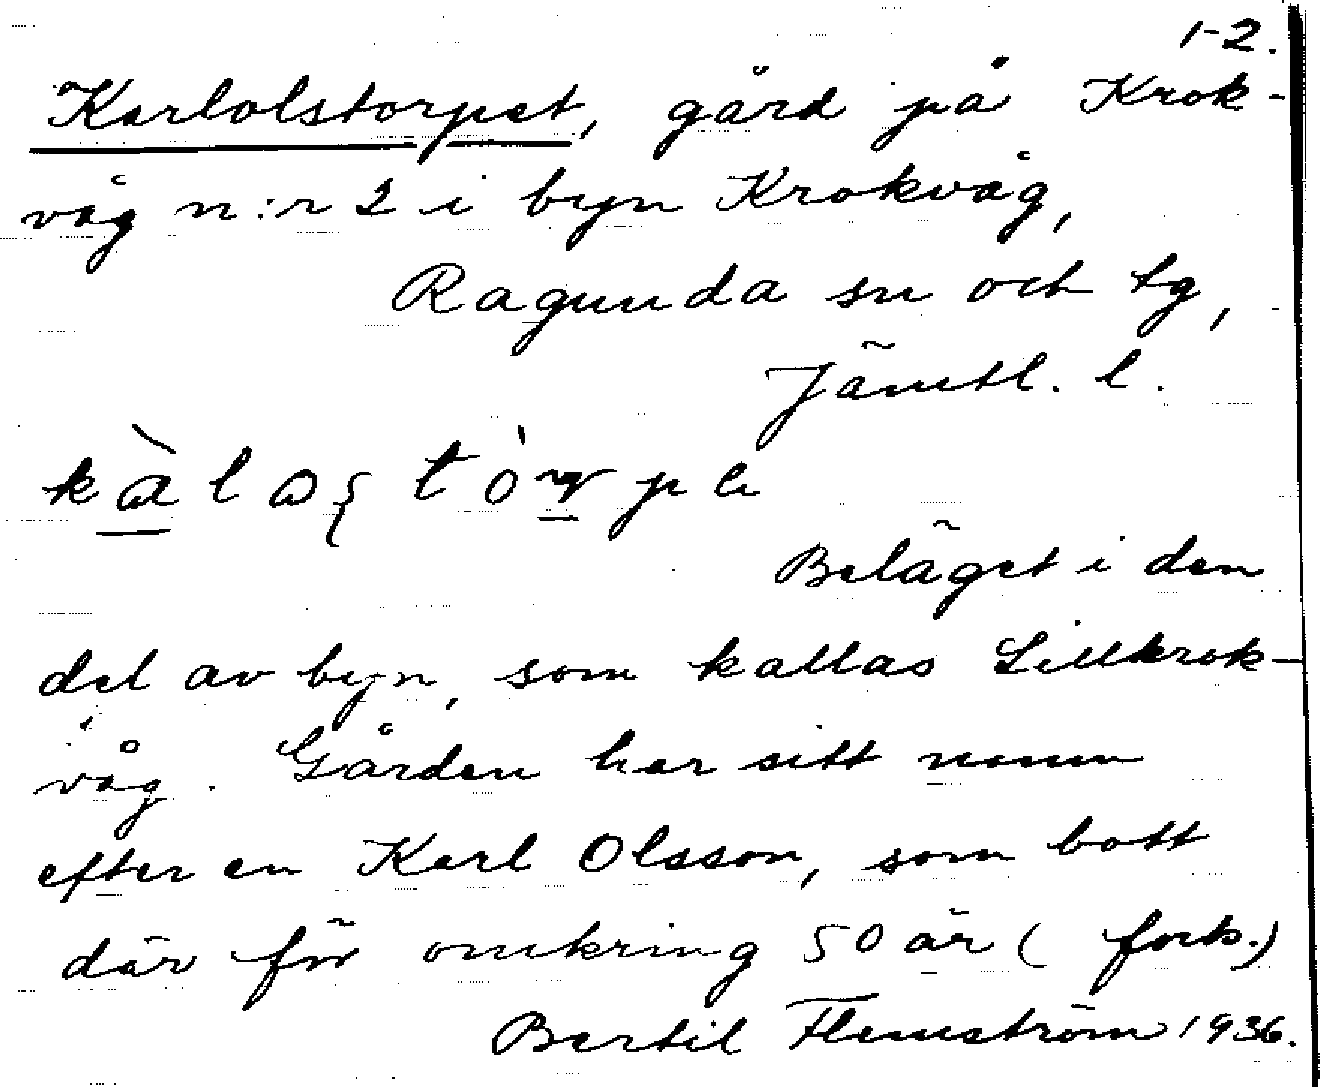 1-2.
Karlolstorpet, gård på Krok-
våg n:r 2 i byn Krokvåg,
Ragunda sn och tg,
Jämtl. l.
Beläget i den
del av byn, som kallas Lillkrok-
våg. Gården har sitt namn
efter en Karl Olsson, som bott
där för omkring 50 år (forts.)
Bertil Flemström 1936.